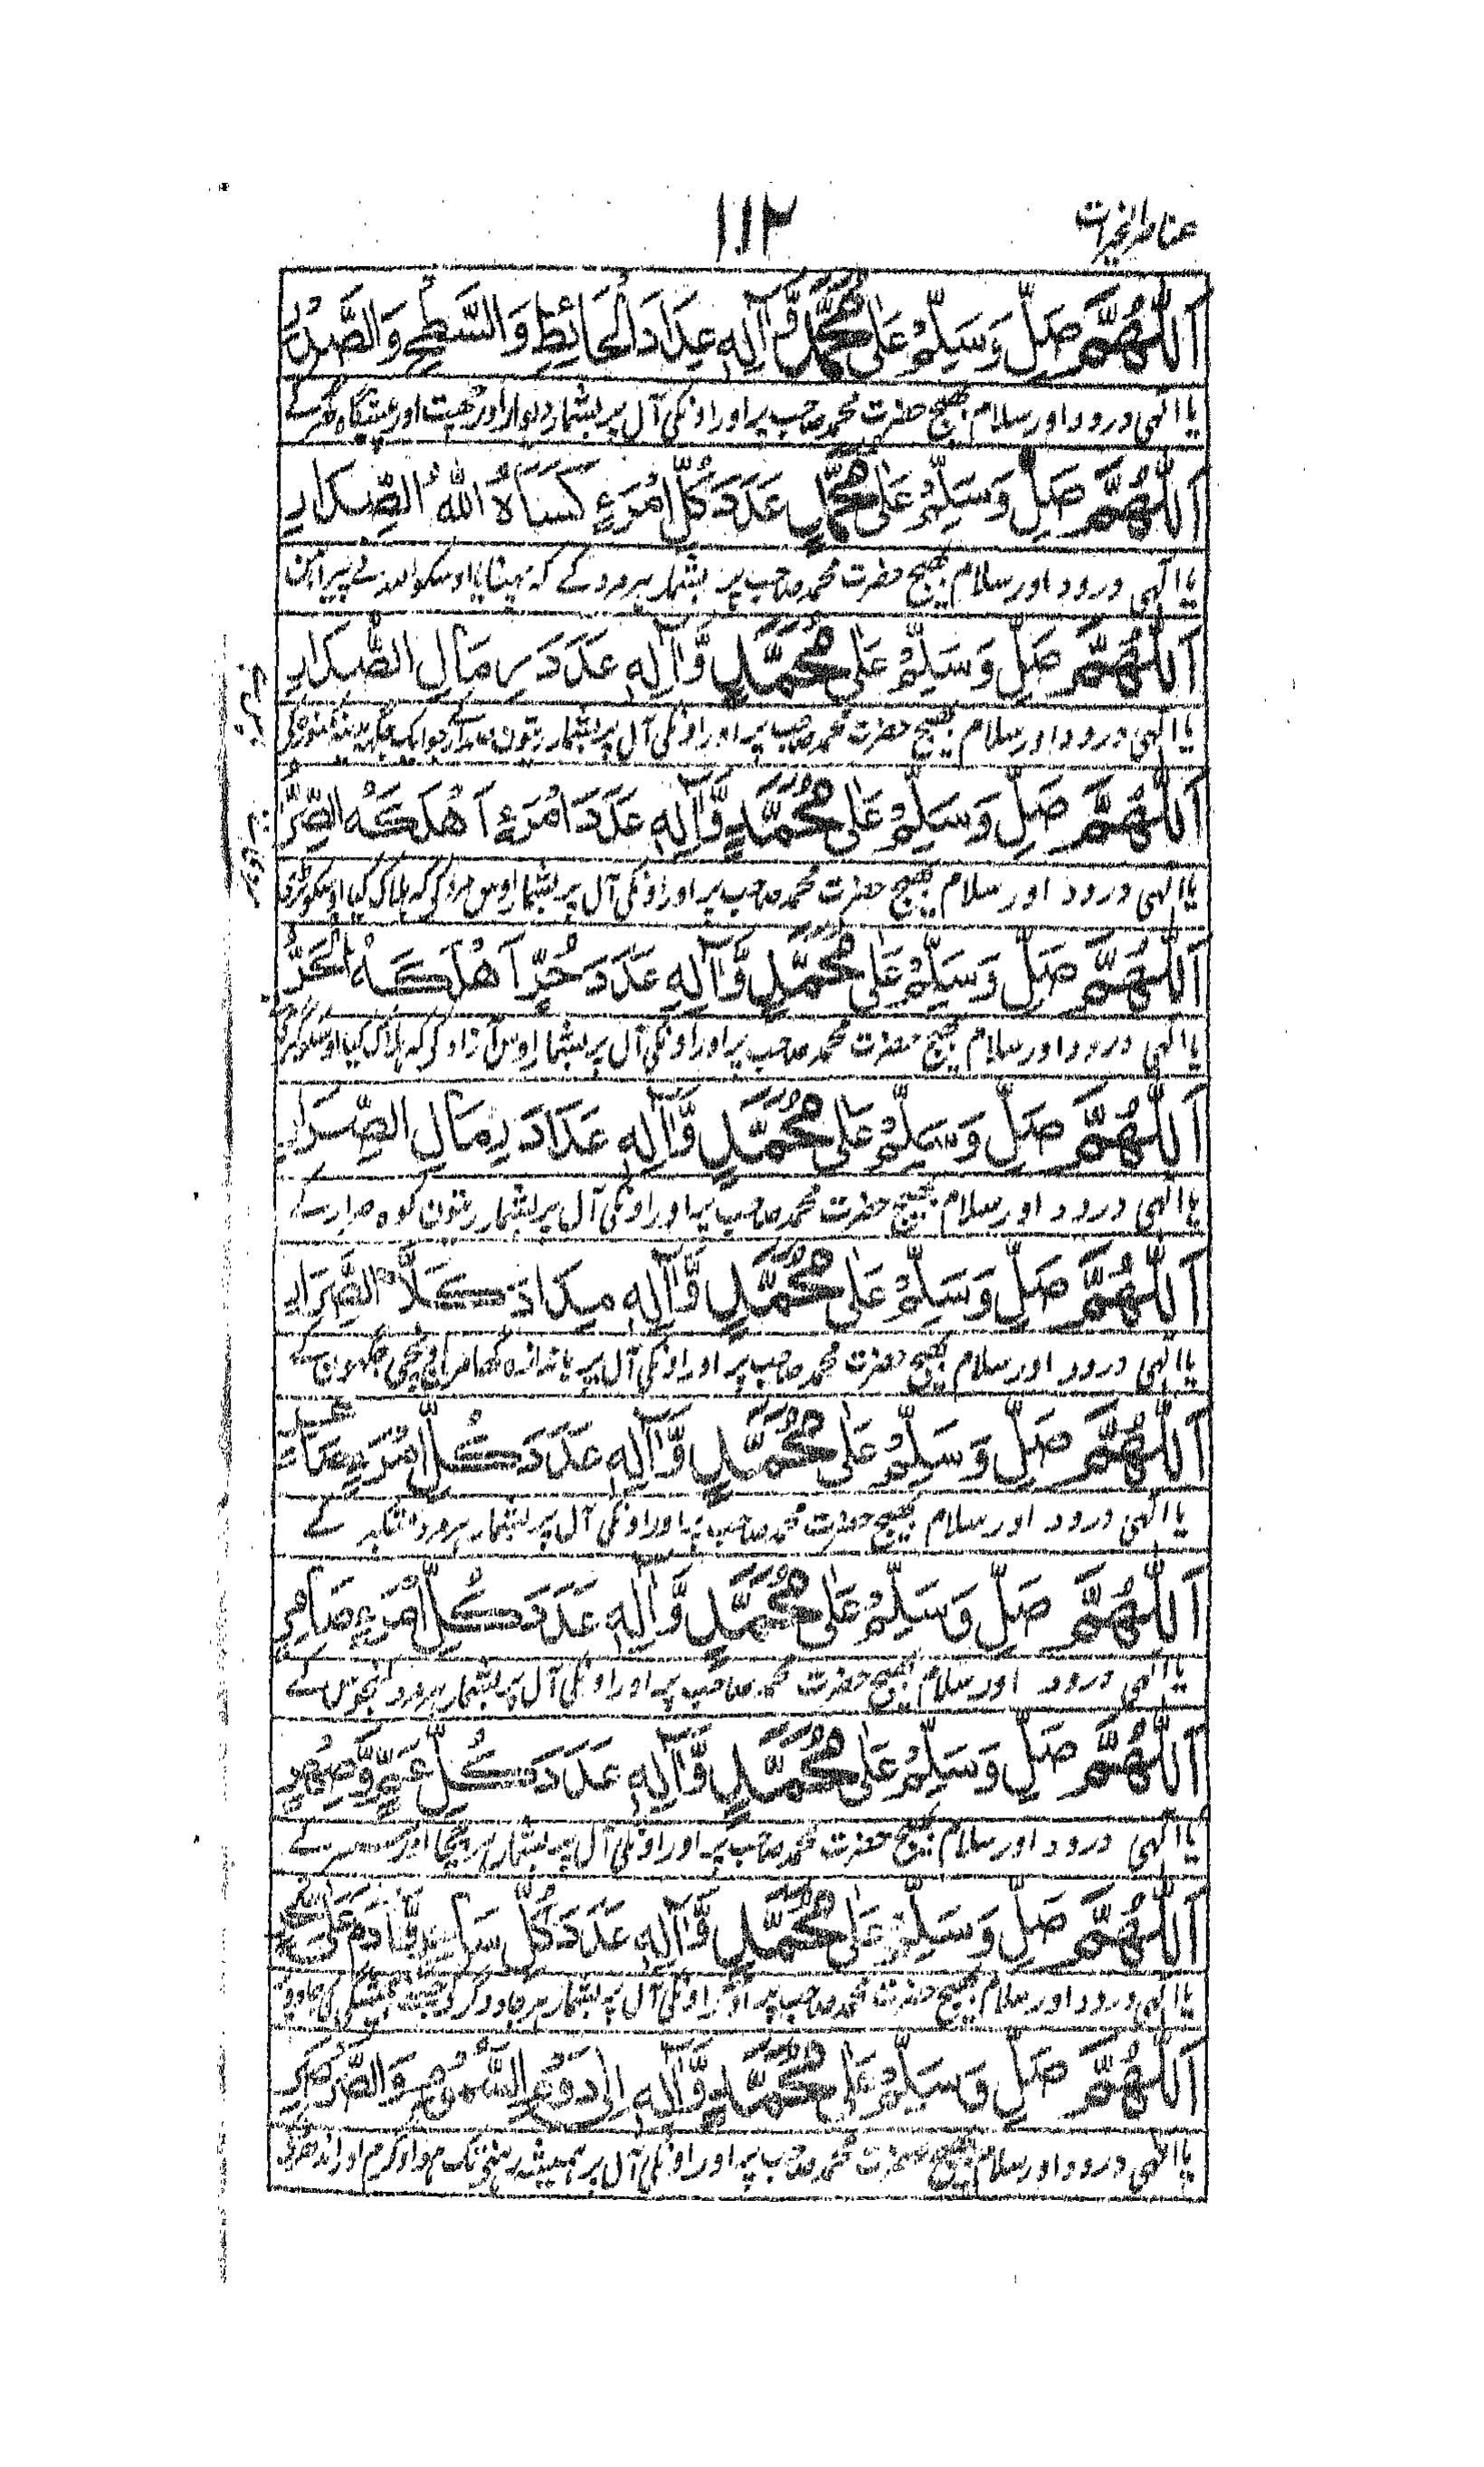 عناصر الخیرات
۱۱۲
اَللّٰهُمَّ صَلِّ وَسَلِّمْ عَلٰی مُحَمَّدٍ وَّاٰلِهٖ عَدَدَ الْحَائِطِ وَالسَّطْحِ وَالصَّدْرِ
یا الٰہی درود اور سلام بھیج حضرت محمد صاحب پر اور اونکی آل پر بشمار دیوار اور چھت اور پیشگاہ گھر کے
اَللّٰهُمَّ صَلِّ وَسَلِّمْ عَلٰی مُحَمَّدٍ عَدَدَ كُلِّ امْرَءٍ كَسَاهُ اللّٰهُ الصِّدَارَ
یا الٰہی درود اور سلام بھیج حضرت محمد صاحب پر بشمار ہر مرد کے کہ پہنایا اوسکو اللہ نے پیراہن
اَللّٰهُمَّ صَلِّ وَسَلِّمْ عَلٰی مُحَمَّدٍ وَّاٰلِهٖ عَدَدَ رِمَالِ الصِّدَارِ
یا الٰہی درود اور سلام بھیج حضرت محمد صاحب پر اور اونکی آل پر بشمار ریتون صدار کے جو ایک جگہ
اَللّٰهُمَّ صَلِّ وَسَلِّمْ عَلٰی مُحَمَّدٍ وَّاٰلِهٖ عَدَدَ امْرَءٍ اَهْلَكَهُ الصِّرُّ
یا الٰہی درود اور سلام بھیج حضرت محمد صاحب پر اور اونکی آل پر بشمار اوس مرد کی کہ ہلاک کیا اوسکو
اَللّٰهُمَّ صَلِّ وَسَلِّمْ عَلٰی مُحَمَّدٍ وَّاٰلِهٖ عَدَدَ حُرٍّ اَهْلَكَهُ الْحَرُّ
یا الٰہی درود اور سلام بھیج حضرت محمد صاحب پر اور اونکی آل پر بشمار اوس آزاد کی کہ ہلاک کیا اوسکو
اَللّٰهُمَّ صَلِّ وَسَلِّمْ عَلٰی مُحَمَّدٍ وَّاٰلِهٖ عَدَدَ رِمَالِ الصِّرَارِ
یا الٰہی درود اور سلام بھیج حضرت محمد صاحب پر اور اونکی آل پر بشمار ریتون کوہ صرار کے
اَللّٰهُمَّ صَلِّ وَسَلِّمْ عَلٰی مُحَمَّدٍ وَّاٰلِهٖ مِدَادَ كَلَأِ الصِّرَارِ
یا الٰہی درود اور سلام بھیج حضرت محمد صاحب پر اور اونکی آل پر باندازہ گھاس جگہون کے
اَللّٰهُمَّ صَلِّ وَسَلِّمْ عَلٰی مُحَمَّدٍ وَّاٰلِهٖ عَدَدَ كُلِّ امْرَءٍ
یا الٰہی درود اور سلام بھیج حضرت محمد صاحب پر اور اونکی آل پر بشمار ہر مرد متکبر کے
اَللّٰهُمَّ صَلِّ وَسَلِّمْ عَلٰی مُحَمَّدٍ وَّاٰلِهٖ عَدَدَ كُلِّ امْرَءٍ
یا الٰہی درود اور سلام بھیج حضرت محمد صاحب پر اور اونکی آل پر بشمار ہر مرد کنجوس کے
اَللّٰهُمَّ صَلِّ وَسَلِّمْ عَلٰی مُحَمَّدٍ وَّاٰلِهٖ عَدَدَ كُلِّ عَمٍّ وَّصِهْرٍ
یا الٰہی درود اور سلام بھیج حضرت محمد صاحب پر اور اونکی آل پر بشمار ہر چچا اور سسر کے
اَللّٰهُمَّ صَلِّ وَسَلِّمْ عَلٰی مُحَمَّدٍ وَّاٰلِهٖ عَدَدَ كُلِّ
یا الٰہی درود اور سلام بھیج حضرت محمد صاحب پر اور اونکی آل پر بشمار ہر جادوگر
اَللّٰهُمَّ صَلِّ وَسَلِّمْ عَلٰی مُحَمَّدٍ وَّاٰلِهٖ اِلٰی دَوْمِ السَّمُوْمِ وَالصَّرْصَرِ
یا الٰہی درود اور سلام بھیج حضرت محمد صاحب پر اور اونکی آل پر ہمیشہ رہنے تک ہوا گرم اور